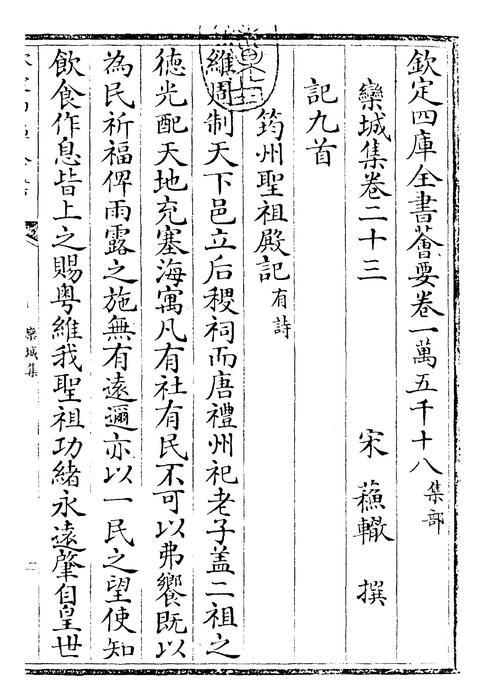 欽定四庫全書薈要卷一萬五千十八集部
欒城集卷二十三 宋 蘇轍 撰
記九首
筠州聖祖殿記有詩
維周制天下邑立后稷祠而唐禮州祀老子盖二祖之
徳光配天地充塞海寓凡有社有民不可以弗饗既以
為民祈福俾雨露之施無有逺邇亦以一民之望使知
飲食作息皆上之賜粤維我聖祖功緒永逺肇自皇世
欒城集